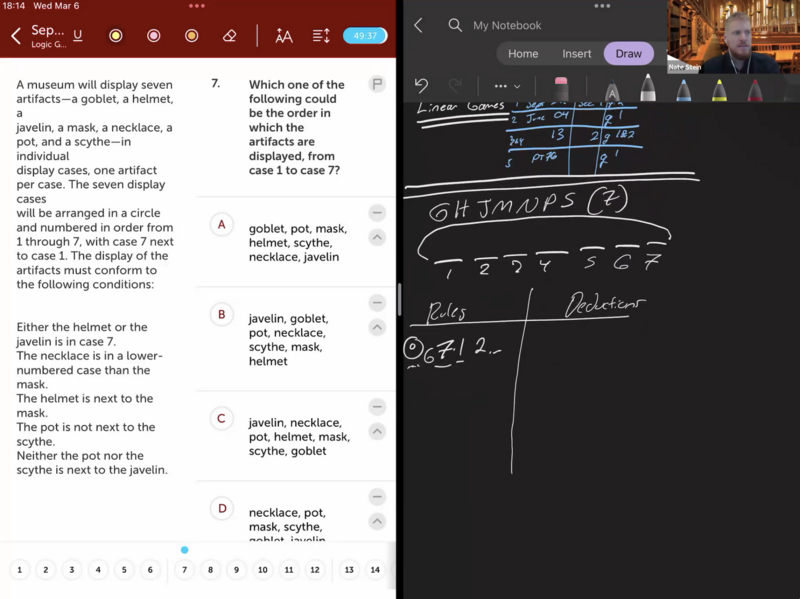 18:14 Wed Mar 6
Sep...
Logic G...
U
AA
49:37
A museum will display seven
artifacts—a goblet, a helmet,
a
javelin, a mask, a necklace, a
pot, and a scythe—in
individual
display cases, one artifact
per case. The seven display
cases
will be arranged in a circle
and numbered in order from
1 through 7, with case 7 next
to case 1. The display of the
artifacts must conform to
the following conditions:
Either the helmet or the
javelin is in case 7.
The necklace is in a lower-
numbered case than the
mask.
The helmet is next to the
mask.
The pot is not next to the
scythe.
Neither the pot nor the
scythe is next to the javelin.
7.
Which one of the
following could
be the order in
which the
artifacts are
displayed, from
case 1 to case 7?
A
goblet, pot, mask,
helmet, scythe,
necklace, javelin
B
javelin, goblet,
pot, necklace,
scythe, mask,
helmet
C
javelin, necklace,
pot, helmet, mask,
scythe, goblet
D
necklace, pot,
mask, scythe,
goblet, javelin
1 2 3 4 5 6 7 8 9 10 11 12 13 14
My Notebook
Home Insert Draw
A
Nate Stein
Linear Games
2 June 04 g 1
13 2 g 1&2
5 PT76 g 1
GHJMNPS (7)
1 2 3 4 5 6 7
Rules Deductions
6 7 1 2...